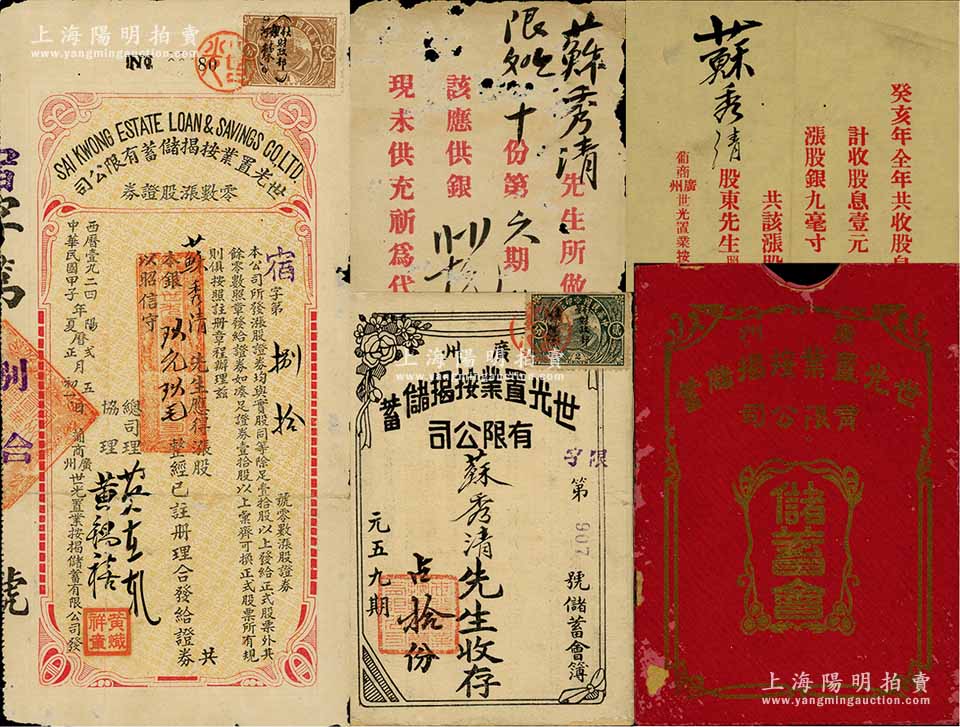 上海陽明拍賣
www.yangmingauction.com
No. 80
SAI KWONG ESTATE LOAN & SAVINGS CO.LTD.
世光置業按揭儲蓄有限公司
零數漲股證券
宿字第捌拾號零數漲股證券
本公司所發漲股證券均與實股同等除足壹拾股以上發給正式股票外其
餘零數照章發給證券如湊足證券壹拾股以上彙齊可換正式股票所有規
則俱按照註冊章程辦理茲
蘇秀清先生應得漲股
本銀 整經已註冊理合發給證券共
以昭信守
總司理
協理
黃
西曆壹九二四陽曆弍月五
中華民國甲子年夏曆正月初一日
葡商廣州世光置業按揭儲蓄有限公司發
黃熾祥章
蘇秀清先生所做
限 十份第六期
該應供銀
現未供充祈爲代
癸亥年全年共收股息
計收股息壹元
漲股銀九毫寸
共該漲股
蘇秀清股東先生照
葡商廣州世光置業按
廣州
世光置業按揭儲蓄
有限公司
限字第907號儲蓄會簿
蘇秀清先生收存
占拾份
元五九期
廣州
世光置業按揭儲蓄
有限公司
儲蓄會
上海陽明拍賣
www.yangmingauction.com